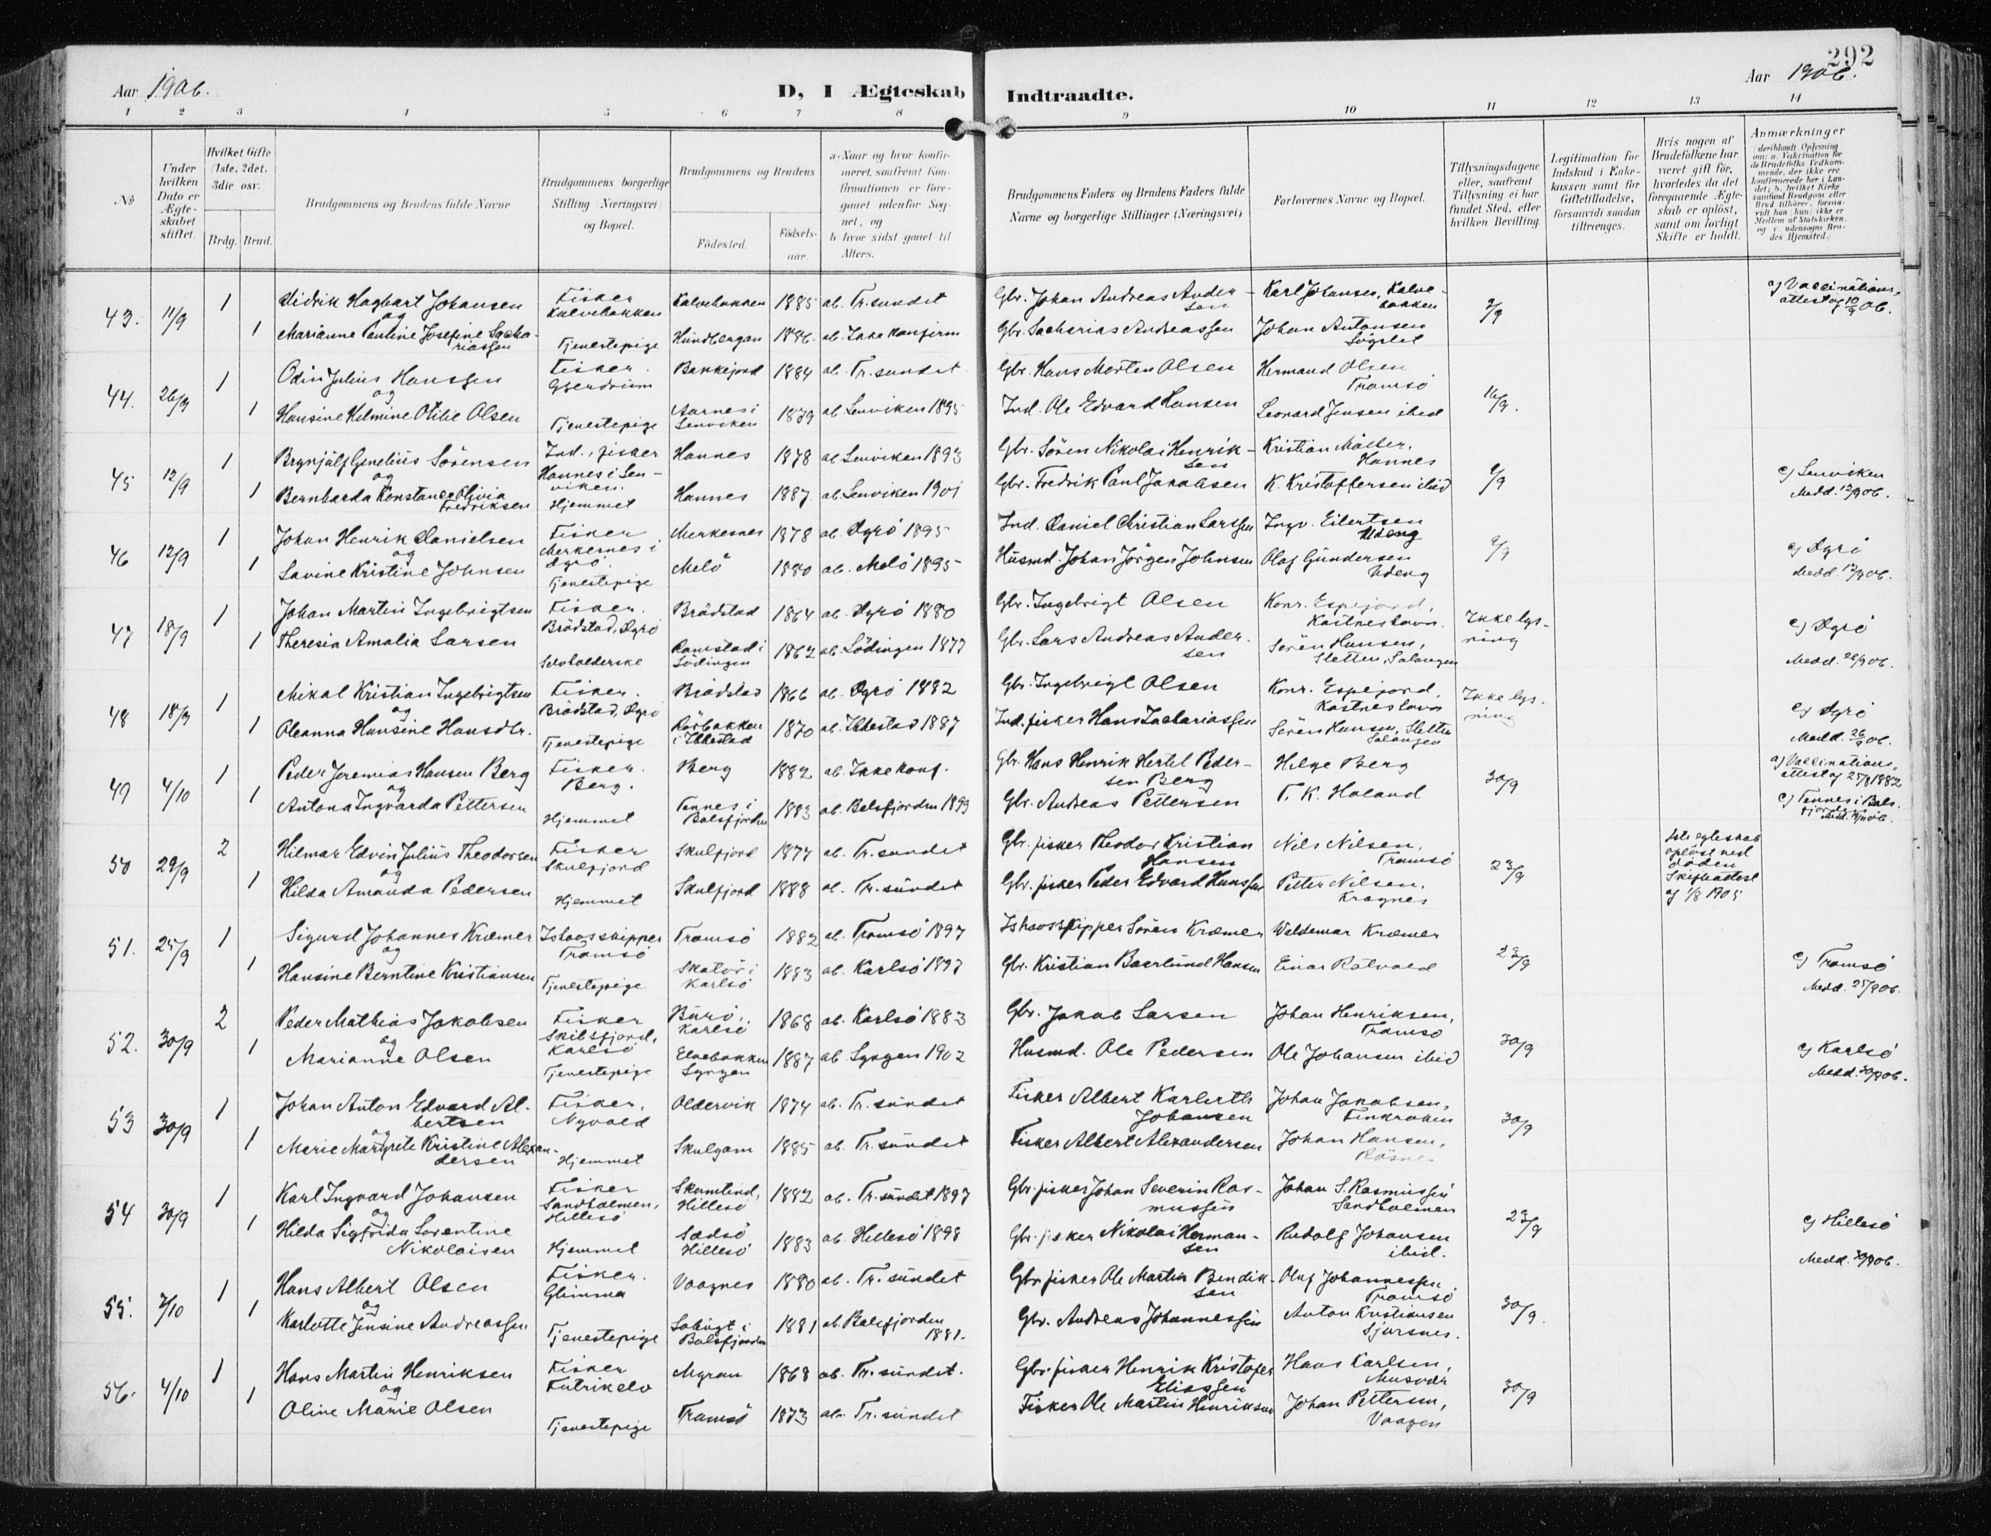 292
Aar 1906.
D, I Ægteskab Indtraadte.
Aar 1906.
1 2 3 4 5 6 7 8 9 10 11 12 13 14
№
Under hvilken Dato er Ægteskabet stiftet.
Hvilket Gifte (1ste, 2det, 3die osv.
Brdg. Brud.
Brudgommens og Brudens fulde Navne
Brudgommens borgerlige Stilling Næringsvei og Bopæl.
Brudgommens og Brudens
Födested.
Födselsaar.
a. Naar og hvor konfirmeret, saafremt Konfirmationen er foregaaet udenfor Sognet, og
b. hvor sidst gaaet til Alters.
Brudgommens Faders og Brudens Faders fulde Navne og borgerlige Stillinger (Næringsvei)
Forlovernes Navne og Bopæl.
Tillysningsdagene eller, saafremt Tillysning ei har fundet Sted, efter hvilken Bevilling.
Legitimation for Indskud i Enkekassen samt for Giftetilladelse, forsaavidt saadan tiltrænges.
Hvis nogen af Brudefolkene har været gift för, hvorledes da det foregaaende Ægteskab er oplöst, samt om lovligt Skifte er holdt.
Anmærkninger
deriblandt Oplysning om: a. Vakcination for de Brudefolks Vedkommende, der ikke ere konfirmerede her i Landet; b. hvilket Kirkesamfund Brudgom eller Brud tilhører, forsaavidt han (hun) ikke er Medlem af Statskirken, og c. udensogns Brudes Hjemsted.
43. 11/9 1 Didrik Hagbart Johansen Fisker Kalvebakken Kalvebakken 1885 ab. Tr.sundet Gbr. Johan Andreas Andersen Karl Johansen, Kalvebakken 2/9 a) Vaccinationsattest af 10/9 06.
og
1 Marianne Pauline Josefine Sackariassen Tjenestepige Hundbergan 1886 ab. Ikke konfirm Gbr. Sacharias Andreassen Johan Antonsen
44. 26/9 1 Odin Julius Hanssen Fisker. Gjerdrum Bakkejord 1884 ab. Tr.sundet Gbr. Hans Morten Olsen Hermand Olsen Tromsö 16/9.
og
1 Hansine Helmine Otilie Olsen Tjenestepige Aarnes i Lenviken 1879 ab. Lenviken 1895 Ind. Ole Edvard Hansen Leonard Jensen ibid
45 12/9 1 Brynjulf Genelius Sörensen Ind., fisker Hannes i Lenviken. Hannes 1878 ab. Lenviken 1893 Gbr. Sören Nikolai Henriksen Kristian Möller, Hannes 9/9 c) Lenviken
og
1 Bernharda Konstance Olivia Fredriksen Hjemmet Hannes 1887 ab. Lenviken 1901 Gbr. Fredrik Paul Jakobsen K. Kristoffersen ibid Medd. 12/9 06.
46 12/9 1 Johan Henrik Danielsen Fisker Merkesnes i Dyrö. Merkesnes 1878 ab. Dyrö 1895 Ind. Daniel Christian Larssen Ingv. Eilertsen Udeng 9/9 c) Dyrö
og
1 Lavine Kristine Johnsen Tjenestepige Melö 1880 ab. Melö 1895 Husmd. Johan Jörgen Johnsen Olaf Gundersen Udeng Medd. 12/9 06.
47 18/9 1 Johan Martin Ingebrigtsen Fisker. Brödstad, Dyrö Brödstad 1864 ab. Dyrö 1880 Gbr. Ingebrigt Olsen Konr. Espejord, Kastneshavn Ikke lysning c) Dyrö
1 Theresia Amalia Larsen Ramstad i Lödingen 1862 ab. Lödingen 1877 Gbr. Lars Andreas Andersen Sören Hansen, Sletten, Salangen Medd. 26/9 06.
48 18/9 1 Mikal Kristian Ingebrigtsen Fisker. Brödstad, Dyrö Brödstad 1866 ab. Dyrö 1882 Gbr. Ingebrigt Olsen Konr. Espejord, Kastneshavn Ikke lysning c) Dyrö
og
1 Oleanna Hansine Hansdtr. Tjenestepige Rörbakken i Ibbestad 1870 ab. Ibbestad 1887 Ind. fisker Hans Zachariassen Sören Hansen, Sletten Salangen Medd. 26/9 06.
49 4/10 1 Peder Jeremias Hansen Berg Fisker. Berg. Berg 1882 ab. Ikke konf. Gbr. Hans Henrik Hertel Pedersen Berg Helge Berg 30/9 a) Vaccinationsattest af 25/8 1882
og
1 Antona Ingvarda Pettersen Hjemmet Tennes i Balsfjorden 1883 ab. Balsfjorden 1899 Gbr. Andreas Pettersen T. K. Holand c) Tennes i Balsfjorden
50 29/9 2 Hilmar Edvin Julius Theodorsen Fisker Skulfjord Skulfjord 1877 ab. Tr.sundet Gbr. fisker Theodor Kristian Hansen Nils Nilsen, Tromsö 23/9 1ste egteskab oplöst ved döden Skifteattest af 1/8 1905
og
1 Hilda Amanda Pedersen Hjemmet Skulfjord 1888 ab. Tr.sundet Gbr. fisker Peder Edvard Hanssen Petter Nilsen, Kragnes
51. 25/9 1 Sigurd Johannes Kræmer Ishavsskipper Tromsö Tromsö 1882 ab. Tromsö 1897 Ishavsskipper Sören Kræmer Waldemar Kræmer 23/9 c) Tromsö
og
1 Hansine Berntine Kristiansen Tjenestepige Skatör i Karlsö 1883 ab. Karlsö 1897 Gbr. Kristian Baerlund Hansen Einar Rotvold Medd. 25/9 06.
52. 30/9 2 Peder Mathias Jakobsen Fisker Skibsfjord, Karlsö Burö, Karlsö 1868 ab. Karlsö 1883 Gbr. Jakob Larsen Johan Henriksen, Tromsö 30/9 c) Karlsö
og
1 Marianne Olsen Tjenestepige Elvebakken Lyngen 1887 ab. Lyngen 1902 Husmd. Ole Pedersen Ole Johansen ibid Medd. 30/9 06.
53 30/9 1 Johan Anton Edvard Albertsen Fisker, Nyvold Oldervik 1874 ab. Tr.sundet Fisker Albert Karlerth Johansen Johan Jakobsen, Finkroken 30/9
og
1 Marie Margrete Kristine Alexandersen Hjemmet Skulgam 1885 ab. Tr.sundet Fisker Albert Alexandersen Johan Hansen,
54 30/9 1 Karl Ingvard Johansen Fisker Sandholmen, Hillesö Skamtind, Hillesö 1882 ab. Tr.sundet 1897 Gbr. fisker Johan Severin Rasmussen Johan S. Rasmussen Sandholmen 23/9 c) Hillesö
og
1 Hilda Sigfrida Lorentine Nikolaisen Hjemmet Sædsö Hillesö 1883 ab. Hillesö 1898 Gbr. fisker Nikolai Hermansen Rudolf Johansen ibid. Medd. 30/9 06.
55. 2/10 1 Hans Albert Olsen Fisker. Glimma Vaagnes 1880 ab. Tr.sundet Gbr. fisker Ole Martin Bendiksen Olaf Johannessen Tromsö 30/9.
og
1 Karlotte Jensine Andreassen Tjenestepige Balsfjorden 1881 ab. Balsfjorden 1881. Gbr. Andreas Johannessen Anton Kristiansen Sjursnes.
56. 4/10 1 Hans Martin Henriksen Fisker Futrikelv Myran 1868 ab. Tr.sundet. Gbr. fisker Henrik Kristofer Eliassen Hans Karlsen, Musvær 30/9
og
1 Oline Marie Olsen Tjenestepige Tromsö 1873 ab. Tr.sundet Fisker Ole Martin Henriksen Johan Pettersen, Vaagen